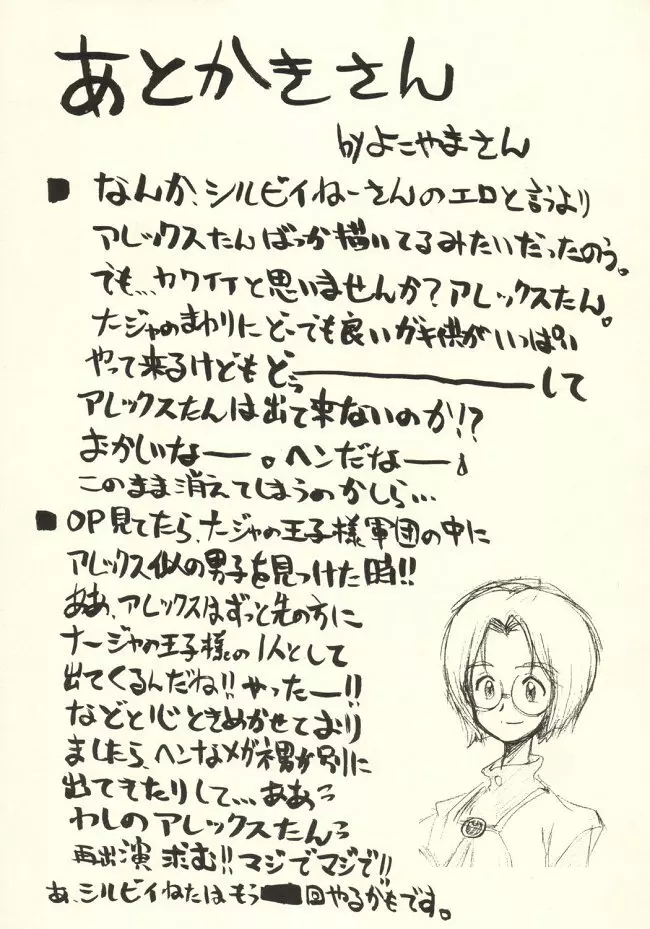 あとかきさん
by よこやまさん
■ なんか、シルビイねーさんのエロと言うより
アレックスたんばっか描いてるみたいだったのう。
でも…カワイイと思いませんか?アレックスたん。
ナージャのまわりにどーでも良いガキ供がいっぱい
やって来るけどもどぅーーーーーして
アレックスたんは出て来ないのか!?
おかしいなー。ヘンだなー。
このまま消えてしまうのかしら…
■ OP見てたら、ナージャの王子様軍団の中に
アレックス似の男子を見つけた時!!
ああ、アレックスはずっと先の方に
ナージャの王子様の1人として
出てくるんだね!!やったー!!
などと心ときめかせており
ましたら、ヘンなメガネ男が別に
出てきたりして…ああっ
わしのアレックスたんっ
再出演求む!!マジでマジで!!
あ、シルビイねたはもう回やるかもです。